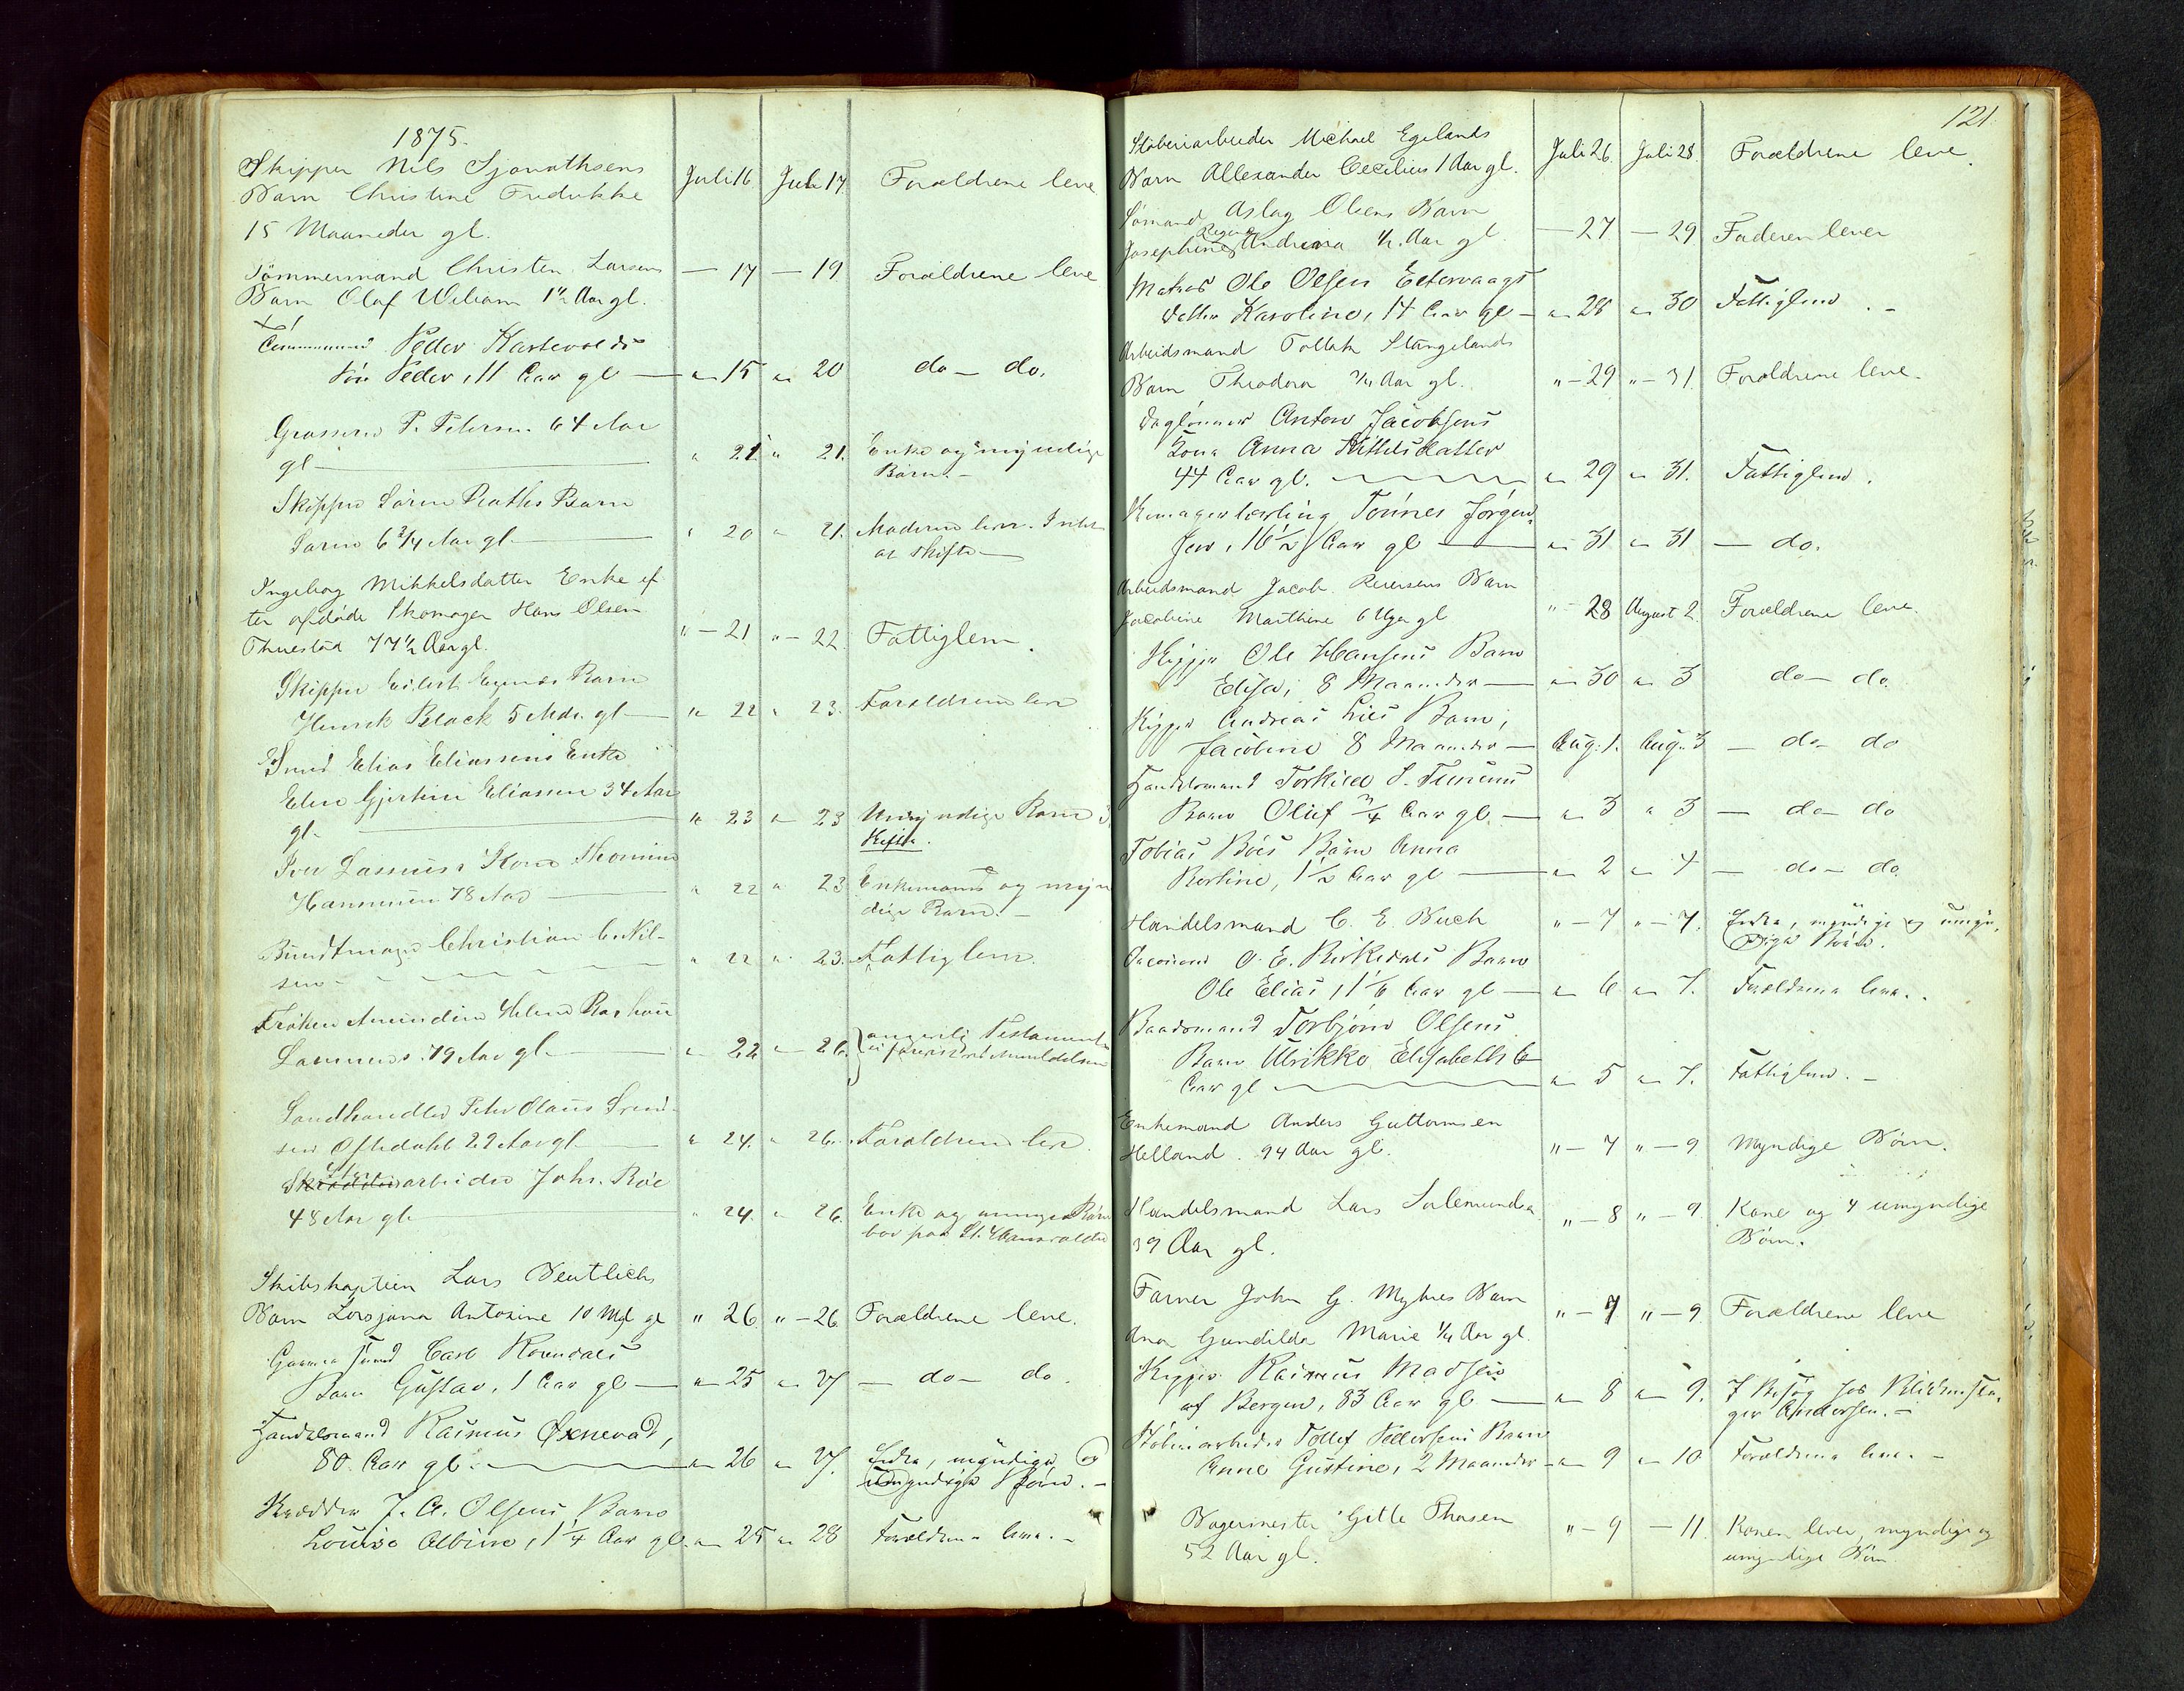 1875.
Skipper Nils Sjonathsens
Barn Christine Fredrikke
15 Maaneder gl.
Juli 16
Juli 17
Forældrene leve
Tömmermand Christen Larsens
Barn Olaf William 1½ Aar gl.
— 17
— 19
Forældrene leve
Peder
Søn Peder, 11 Aar gl —
" 15
" 20
do — do.
P. Petersen 64 Aar
gl —
" 21
" 21.
Enke og myndige
Børn. —
Skipper Sören Barn
Sören 6 3/4 Aar gl —
" 20
" 21.
Moderen lever. Intet
at skifte —
Ingeborg Mikkelsdatter Enke ef
ter afdöde Skomager Hans Olsen
77½ Aar gl.
" — 21
" — 22
Fattiglem.
Skipper Eilert Barn
Henrik Block 5 Mdr. gl —
" 22
" 23.
Forældrene leve
Elias Eliassens Enke
Elen Gjertine Eliassen 34 Aar
gl —
" 23
" 23
Umyndige Børn
Skifte.
Kone Thomine
78 Aar —
" 22
" 23
Enkemand og myn
dige Børn. —
Bundtmager Christian C. Nil-
sen —
" 22
" 23.
Fattiglem.
Fröken Helene
79 Aar gl. —
" 22
" 26.
Testamente
Landhandler Peter Olaus Svend-
sen Oftedahl 29 Aar gl —
" 24.
" 26.
Forældrene leve
arbeider Johs. Röe
48 Aar gl —
" 24.
" 26.
Enke og Börn
bor paa St. Hans
Skibskaptein Lars
Barn Antonine 10 Md gl
" 26
" — 26
Forældrene leve.
Carl Rosendals
Barn Gustav, 1 Aar gl —
" 25
" 27
— do — do.
Handelsmand Rasmus Øxnevad,
80 Aar gl. —
" 26
" 27.
Enke, myndige og
umyndige Børn. —
Skrædder J. A. Olsens Barn
Louise Albine, 1¼ Aar gl.
" 25
" 28
Forældrene leve. —
121.
Stöberiarbeider Michael Egelands
Barn Allexander Cecilius 1 Aar gl.
Juli 26.
Juli 28.
Forældrene leve.
Sömand Aslag Olsens Barn
Regine
Josephine Andrea ½ Aar gl.
— 27
— 29
Faderen lever
Matros Ole Olsen
Datter Karoline, 14 Aar gl —
" 28
" 30
Fattiglem. —
Arbeidsmand Tollak Stangelands
Barn Theodora 3/4 Aar gl.
" — 29
" — 31.
Forældrene leve.
Daglönner Anton Jacobsens
Kone Anna Kittelsdatter
44 Aar gl. —
" 29
" 31.
Fattiglem.
Tönnes Jörgen-
sen, 16½ Aar gl —
" 31
" 31
— do.
Arbeidsmand Jacob Reiersens Barn
Jacobine Marthine 6 Uger gl
" — 28
August 2.
Forældrene leve.
Skipper Ole Hansens Barn
Elisa, 8 Maaneder —
" 30
" 3
do — do.
Skipper Andreas Lies Barn,
Jacobine 8 Maaneder —
Aug: 1.
Aug: 3
— do — do
Handelsmand Torkild S.
Barn Oluf 3/4 Aar gl. —
" 3
" 3
— do — do
Tobias Böes Barn Anna
Bertine, 1½ Aar gl —
" 2
" 4
— do — do.
Handelsmand C. E. Buch
" — 7
" — 7.
Enke, myndige og umyn-
dige Börn.
O. E. Birkedals Barn
Ole Elias, 1 1/6 Aar gl —
" 6
" 7.
Forældrene leve.
Baadsmand Torbjörn Olsens
Barn Ulrikke Elisabeth 6
Aar gl —
" 5
" 7.
Fattiglem. —
Enkemand Anders Guttormsen
Helland. 94 Aar gl.
" — 7
" — 9
Myndige Börn.
Handelsmand Lars Salemundsen
39 Aar gl.
" — 8
" — 9.
Kone og 4 umyndige
Börn.
Farver John G. Myhres Barn
Ana Gundilda Marie ¼ Aar gl.
" — 7
" — 9
Forældrene leve
Skipper Rasmus Madsen
af Bergen, 83 Aar gl —
" 8
" 9.
I Besøg hos
Andersen. —
Stöberiarbeider Tollef Pedersens Barn
Anne Gustine, 2 Maaneder —
" 9
" 10
Forældrene leve. —
Bagermester Gitle Thasen
52 Aar gl.
" — 9
— 11.
Konen lever, myndige og
umyndige Börn